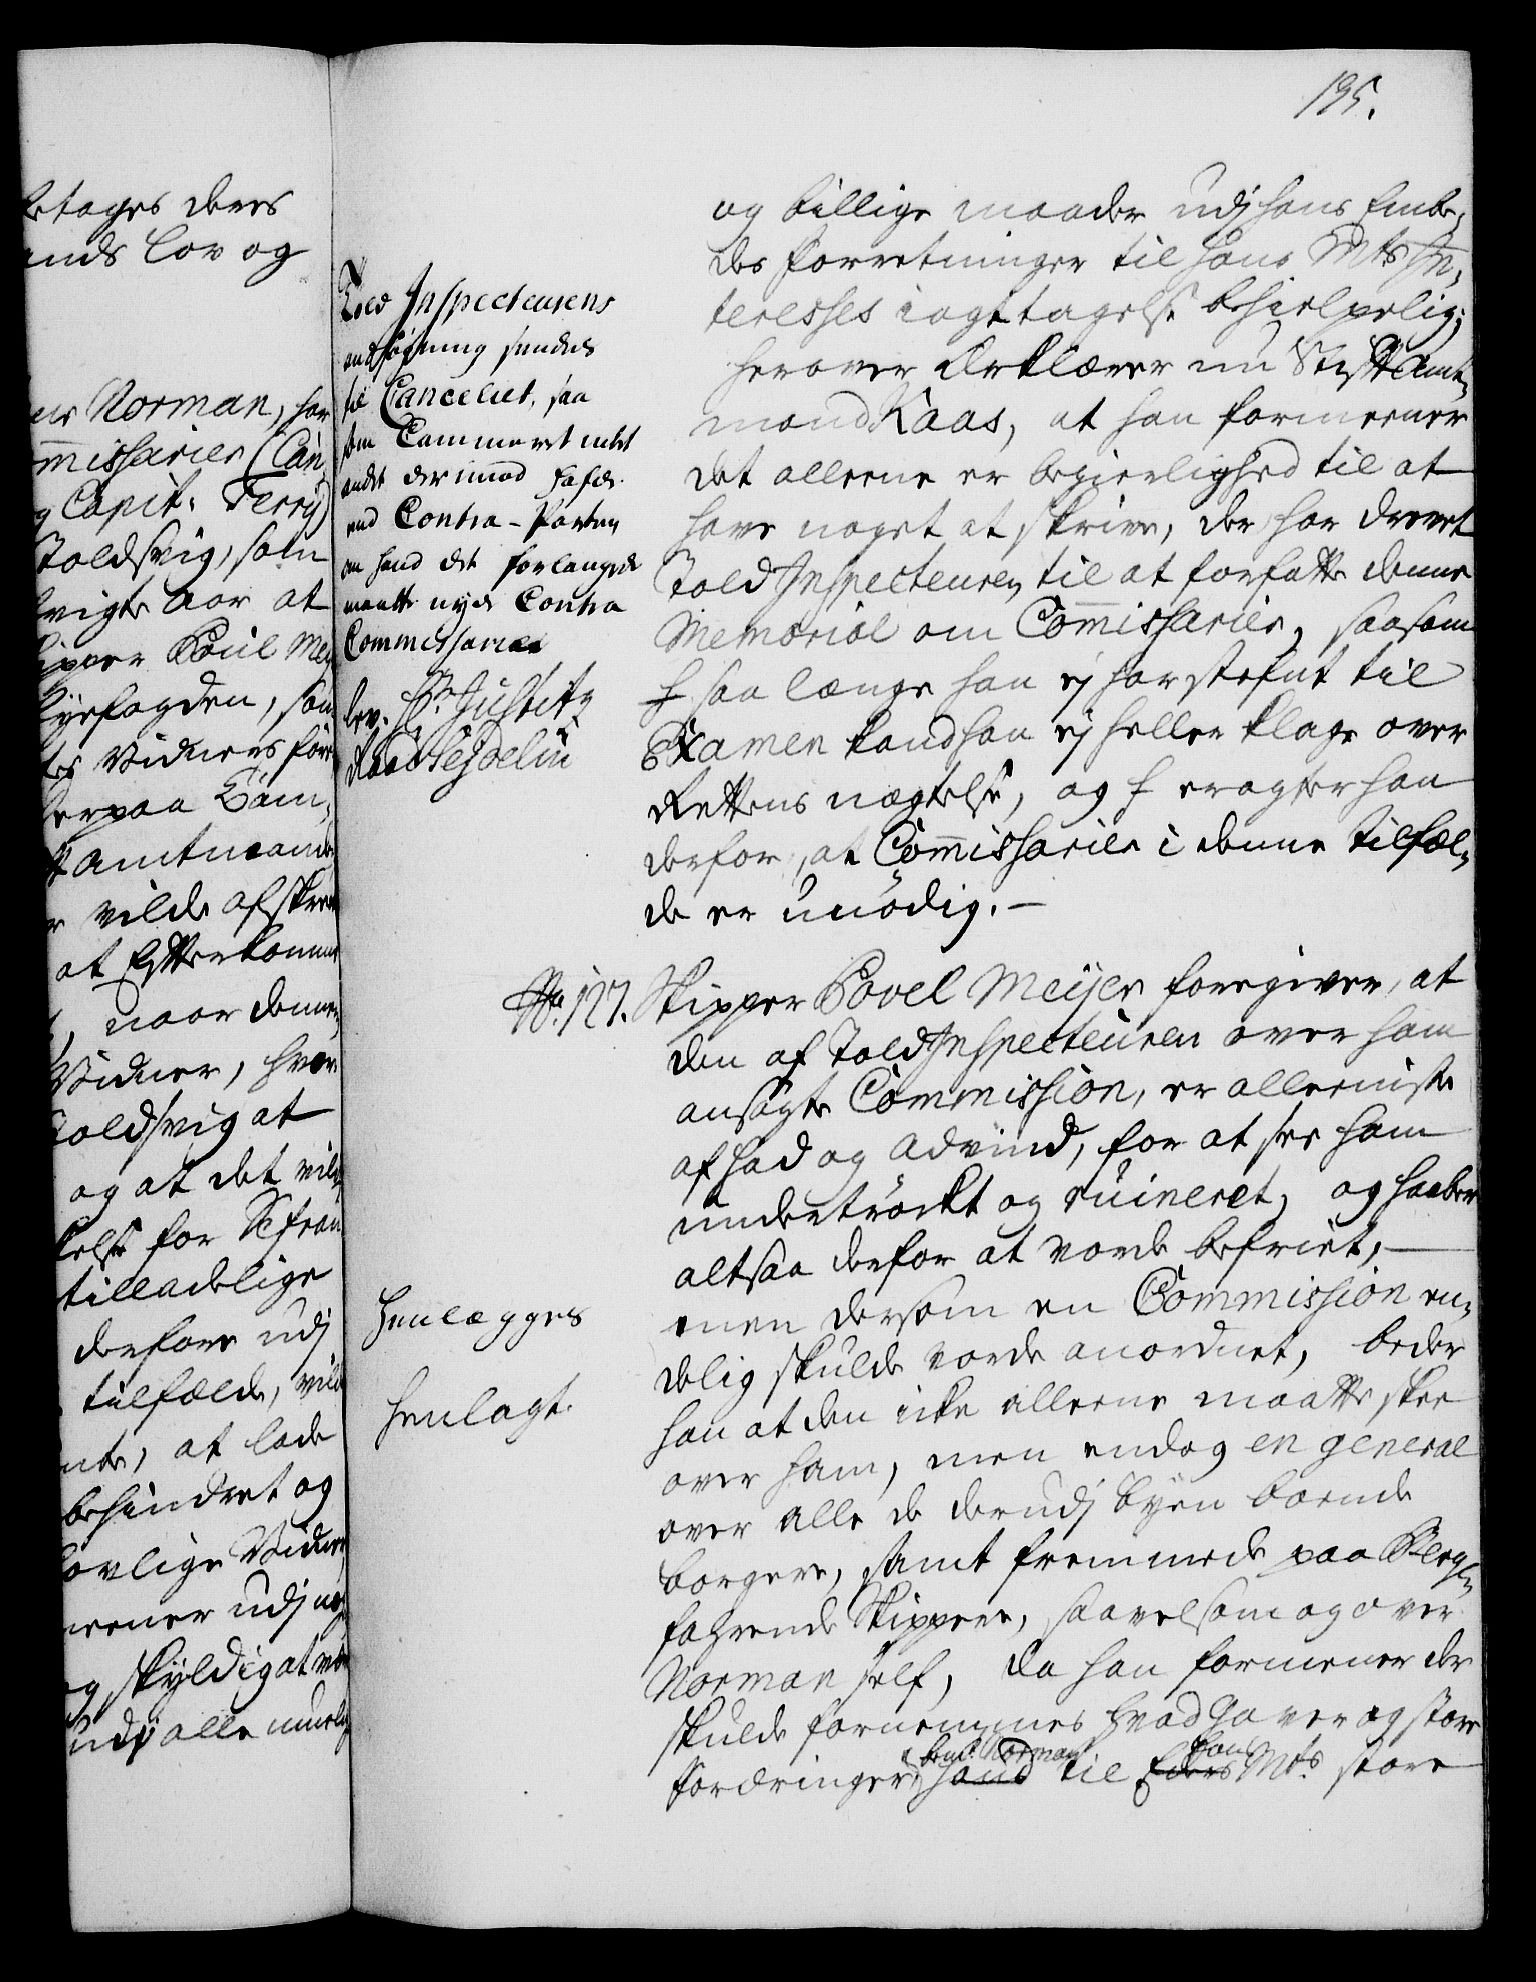 195.
betages deres
ands lov og
Norman, har
mmissarier (Can
g Capit: Ferry)
Toldsvig, som
vigte aar at
ipper Poul Mey
Byefogden, som
Vidners føre
derpaa
Stiftamtmande
vilde afskrær
at Efterkomme
naar denne
Vidner, hvor
Toldsvig at
og at det vil
else for
tilladelige
derfore udj
tilfælde, vild
at lade
behindret og
lovlige Vidner
meener udj
og skyldig at
udj alle muelig
Told Inspecteurens
ansøgning sendes
til Cancelliet, saa
som Cammeret intet
andet derimod hafde
end Contra-Parten
om hand det forlangede
maatte nyde Contra
Commissarier
lev. Hr. Justitz
Raad Seydelin
og billige maader udj hans Embe-
des forretninger til hans Mts In-
teresses iagttagelse behielpelig;
herover erklærer nu Stiftamt-
mand Kaas, at han formeener
det alleene er begierlighed til at
have noget at skrive, der har drevet
Told Inspecteuren til at forfatte denne
Memorial om Commissarier, saasom
saa længe han ej har stefnt til
Examen kand han ej heller klage over
Rettens nægtelse, og eragter han
derfor, at Commissarier i denne tilfæl-
de er unødig.
No. 127. Skipper Povel Meijer foregiver, at
den af Told Inspecteuren over ham
ansøgte Commission, er allermiste
af had og advind, for at see ham
undertrøckt og ruineret, og haaber
altsaa derfor at vorde befriet,
men dersom en Commission en-
delig skulde vorde anordnet, beder
han at den icke alleene maatte skee
over ham, men endog en general
over alle de derudj byen boende
borgere, samt fremmede paa Berg-
fahrende Skippere, saavelsom og over
Norman self, da han formener der
skulde fornemmes hvad gaver og store
fordringer hand til Eders Mts. store
bem.te Norman
hans
Henlægges
Henlagt.